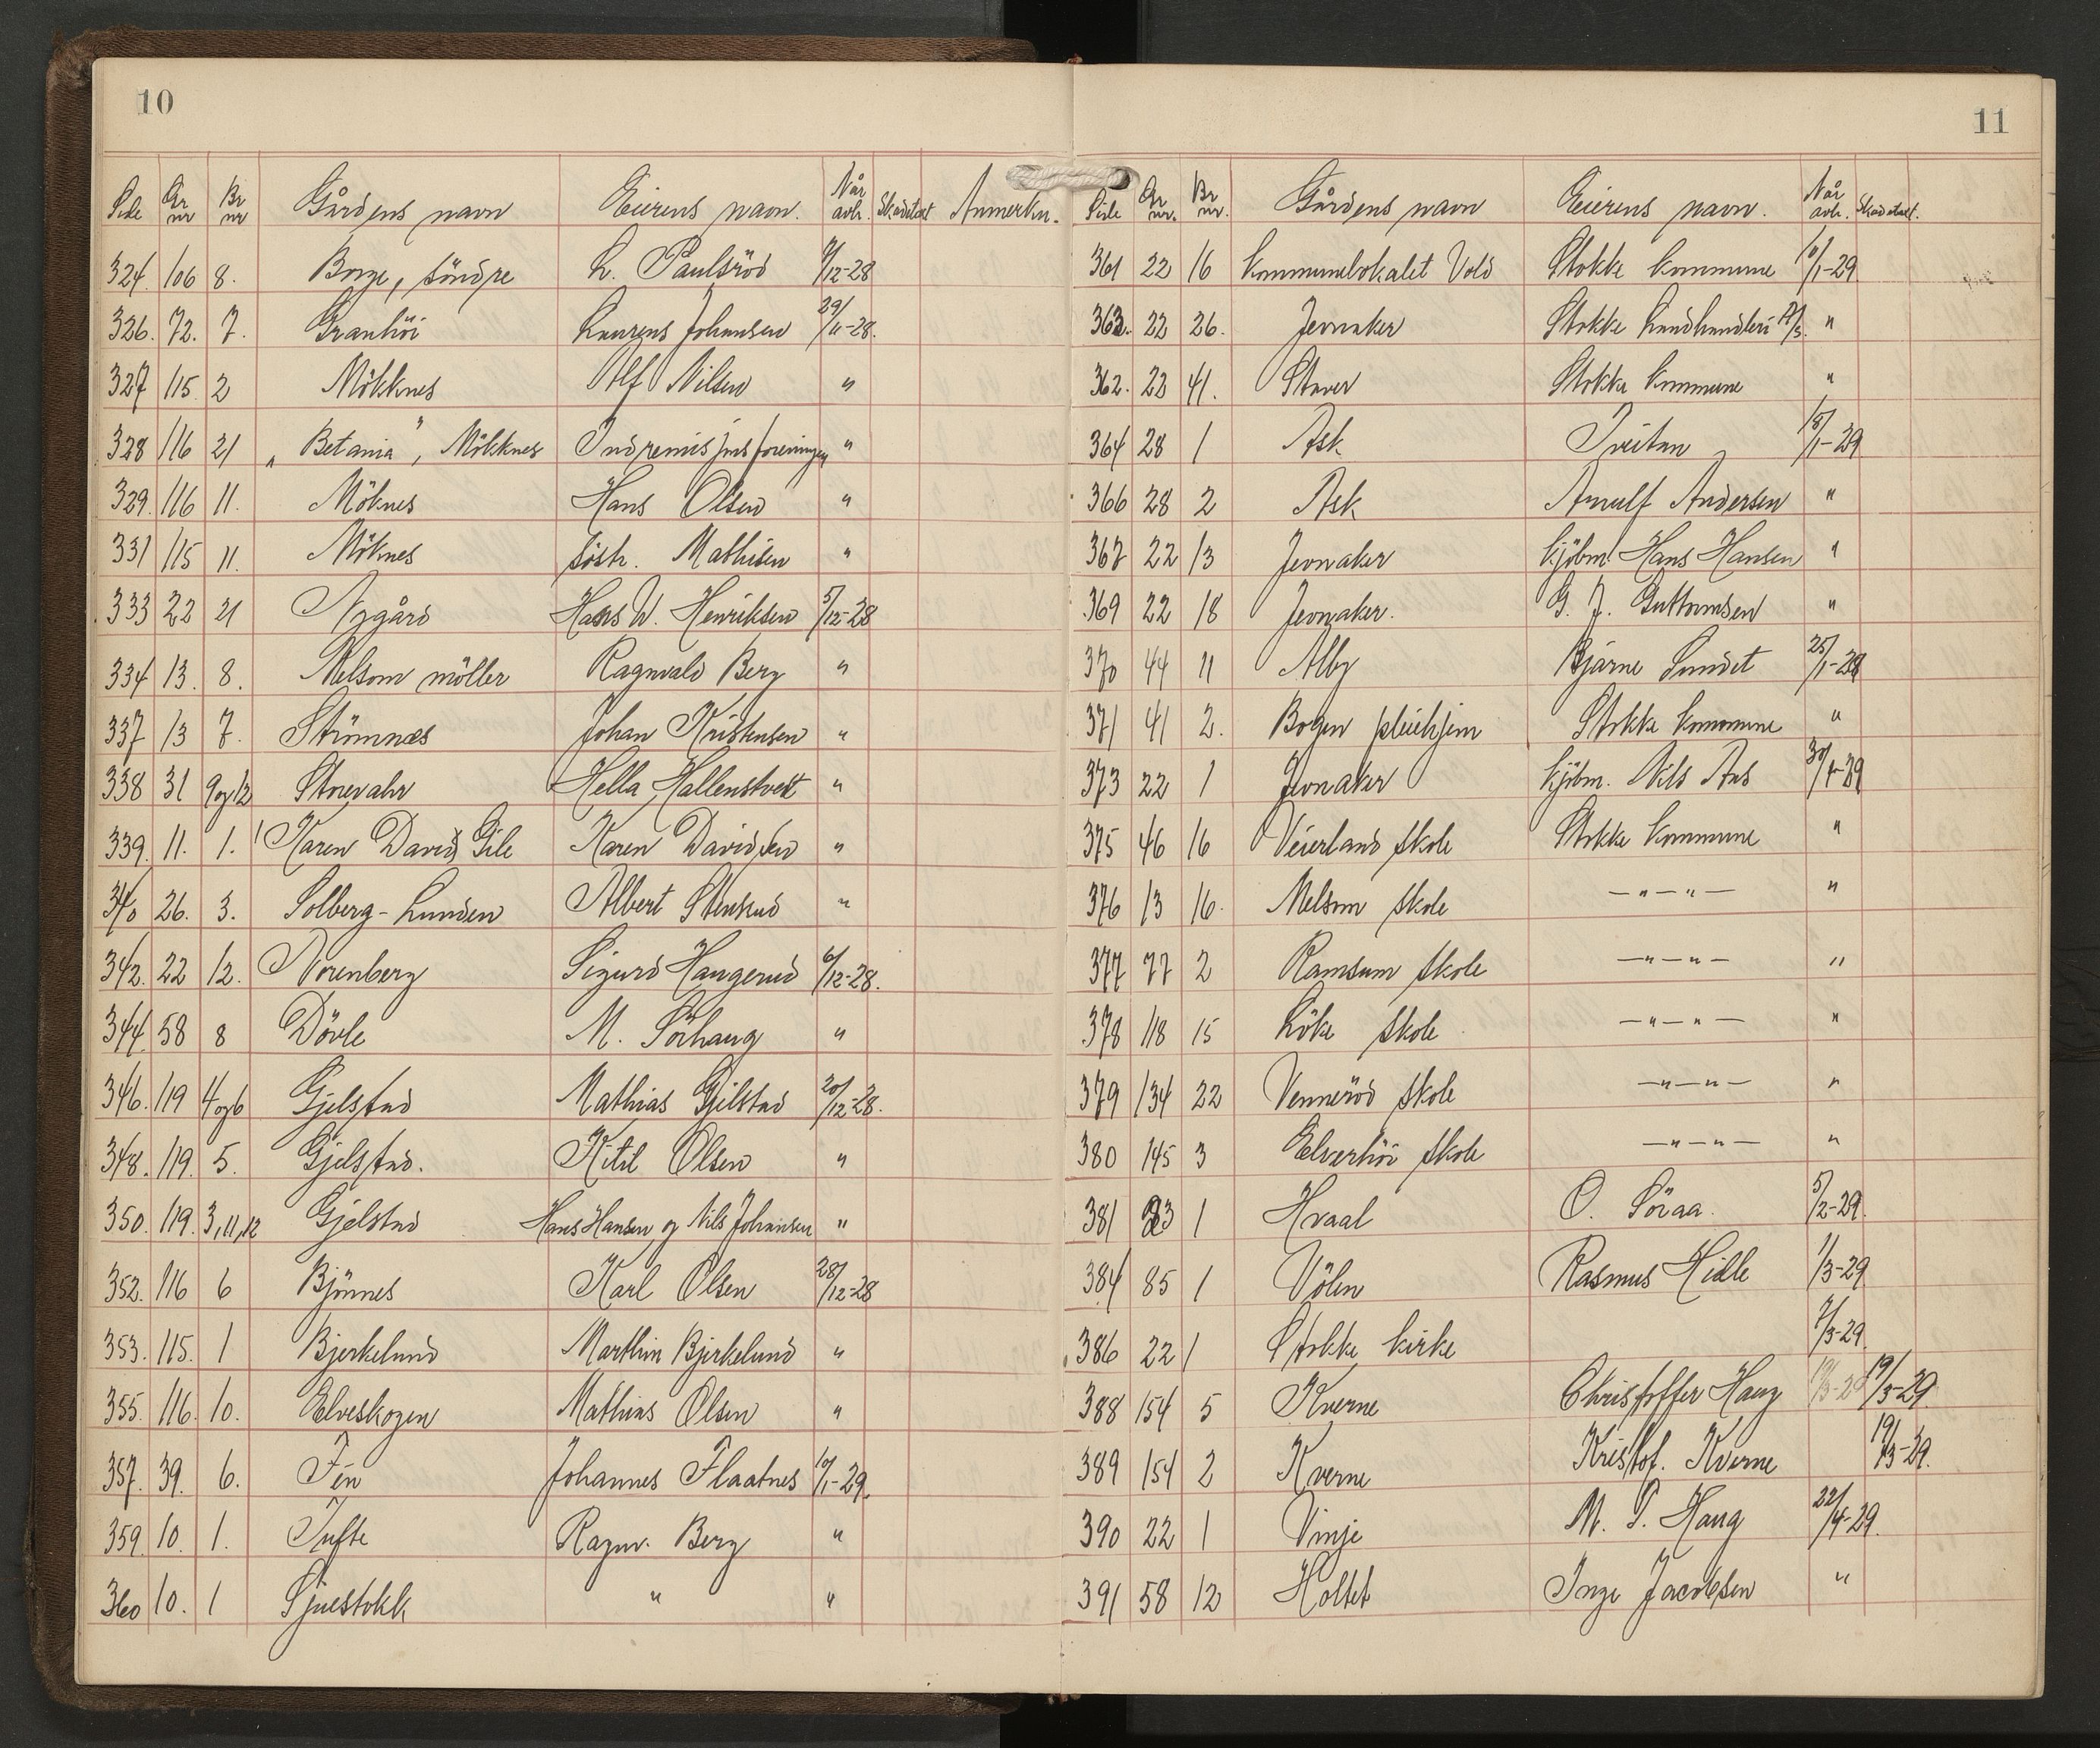 10
Side Gr nr Br nr Gårdens navn Eierens navn. Når avh. Skadetaxt Anmerkn.
324. 106 8. Borge, söndre L. Paulsröd 7/12-28
326. 72. 7. Granhöi Laurens Johansen 29/11-28.
327 115. 2 Mökknes Alf Nilsen "
328 116 21 "Betania", Mökknes Indremisjonsforeningen "
329. 116 11. Möknes Hans Olsen "
331 115 11. Möknes Söstr. Mathisen "
333 22 21 Nygård Hans W. Henriksen 5/12-28
334 13. 8. Melsom möller Ragnvald Berg "
337 13 7. Strömnæs Johan Kristensen "
338 31 9og12 Storevahr Hella Hallenstvet "
339. 11. 1. Karen Davids Gile Karen Davidsen "
340 26. 3. Solberg-Lunden Albert Stensrud "
342. 22 12. Norenberg Sigurd Haugerud 6/12-28.
344. 58 8 Dövle M. Sörhaug "
346. 119 4og6 Gjelstad Mathias Gjelstad 20/12-28.
348. 119. 5. Gjelstad. Kitil Olsen "
350. 119. 3,11,12 Gjelstad Hans Hansen og Nils Johansen "
352. 116 6 Bjönnes Karl Olsen 28/12-28
353. 115. 1 Bjerkelund Marthin Bjerkelund "
355. 116. 10. Elveskogen Mathias Olsen "
357. 39. 6. Fén Johannes Flaatnes 10/1-29.
359. 10. 1. Tufte Ragnv. Berg "
360 10. 1 Sjuestokk " "
11
Side Gr nr. Br nr. Gårdens navn Eierens navn. Når avh. Skadetaxt.
361 22 16 Kommunelokalet Vold Stokke kommune 10/1-29.
363. 22 26. Jevnaker Stokke Landhandleri A/S. "
362. 22 41. Staver Stokke kommune "
364 28 1 Ask Tveitan 15/1-29
366 28 2 Ask Arnulf Andersen "
367 22 13 Jevnaker Kjöbm. Hans Hansen "
369 22 18 Jevnaker. G. J. Guttormsen "
370 44 11 Alby Bjarne Sundet 25/1-28
371 41 2. Bogen pleiehjem Stokke kommune "
373 22 1 Jevnaker Kjöbm. Nils Aas 30/1-29
375 46 16 Veierland skole Stokke kommune "
376 13 16. Melsom skole —"—"— "
377 77 2 Ramsum skole —"—"— "
378 118 15 Löke skole —"—"— "
379 134 22 Venneröd skole —"—"— "
380 145 3 Elverhöi skole —"—"— "
381 23 1 Hvaal O. Söraa. 5/2-29.
384 85 1 Völen Rasmus Hidle 1/3-29
386 22 1 Stokke kirke 7/3-29.
388 154 5 Kverne Christoffer Haug 19/3-29 19/3-29.
389 154 2 Kverne Kristof. Kverne 19/3-29.
390 22 1 Vinje M. P. Haug 22/4-29.
391 58 12 Holtet Inge Jacobsen "